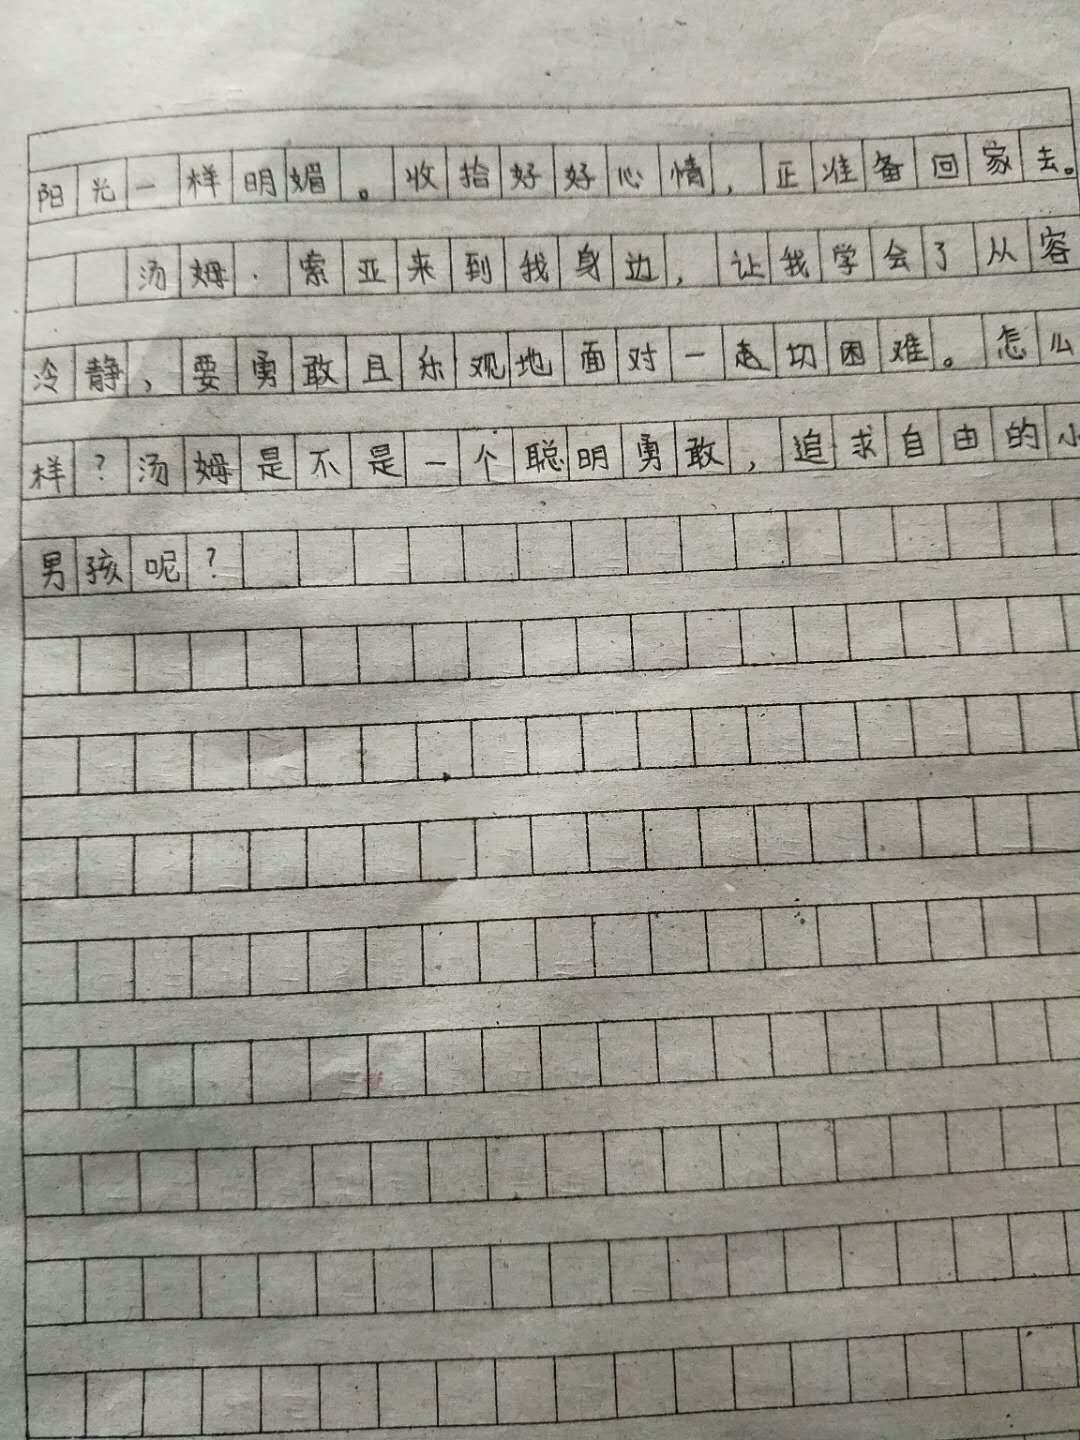 阳光一样明媚。收拾好好心情，正准备回家去。
汤姆·索亚来到我身边，让我学会了从容
冷静，要勇敢且乐观地面对一切困难。怎么
样？汤姆是不是一个聪明勇敢，追求自由的小
男孩呢？